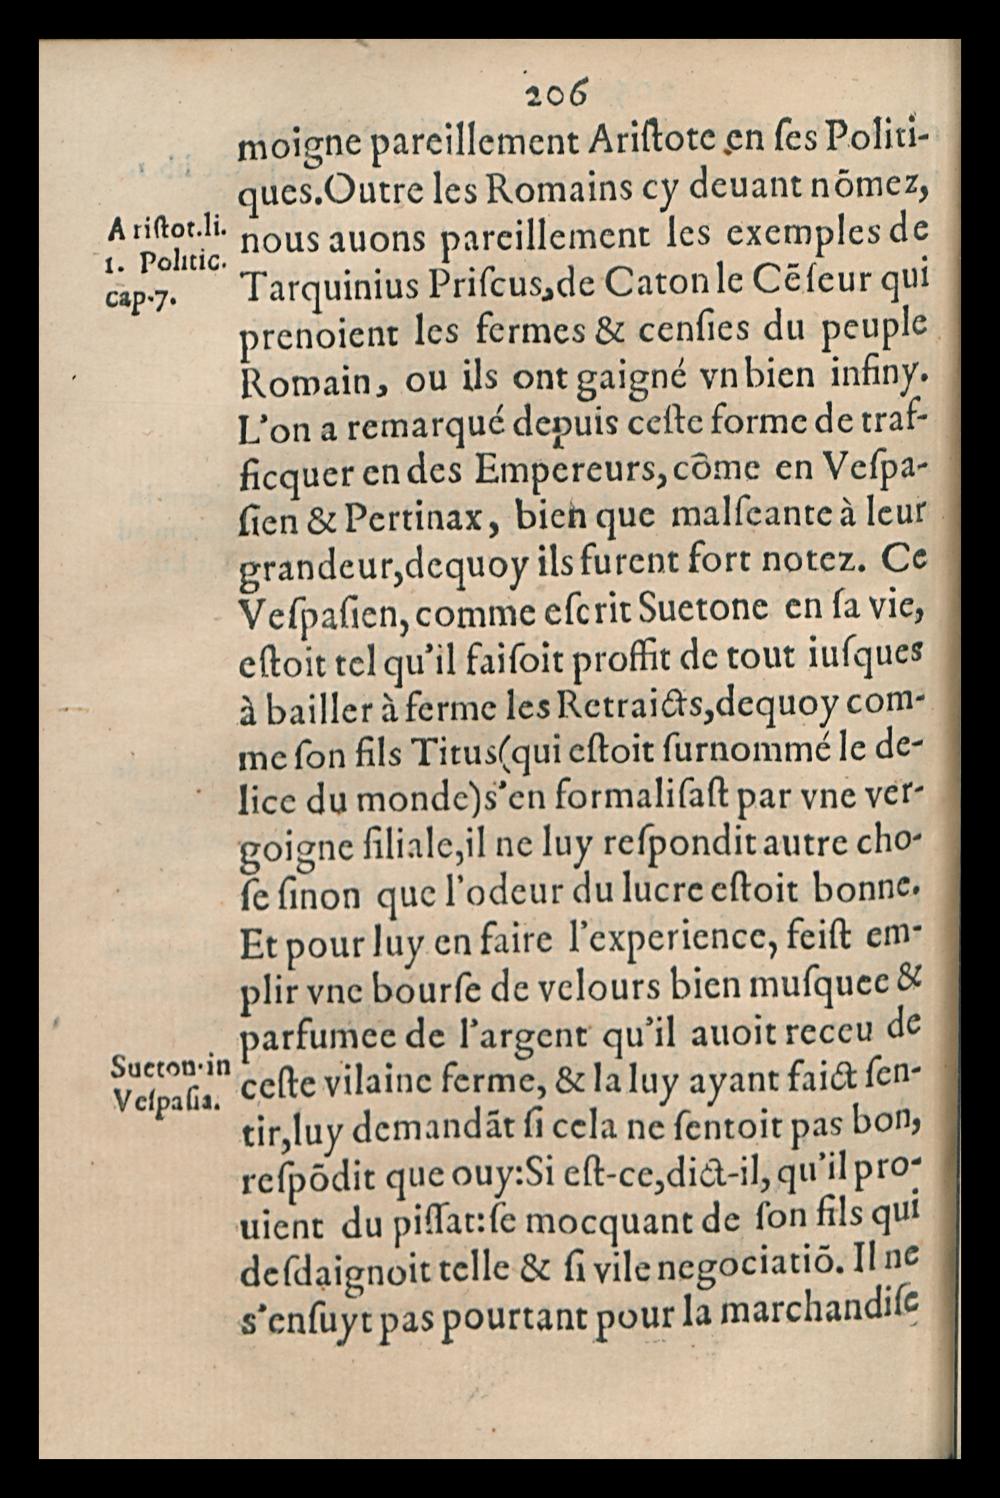 206
moigne pareillement Ariſtote en ſes Politi-
ques.Outre les Romains cy deuant nõmez,
Ariſtot.li.
1. Politic.
cap.7.
nous auons pareillement les exemples de
Tarquinius Priſcus,de Caton le Cẽſeur qui
prenoient les fermes & cenſies du peuple
Romain, ou ils ont gaigné vn bien infiny.
L'on a remarqué depuis ceſte forme de traf-
ficquer en des Empereurs,cõme en Veſpa-
ſien & Pertinax, bien que malſeante à leur
grandeur,dequoy ils furent fort notez. Ce
Veſpaſien,comme eſcrit Suetone en ſa vie,
eſtoit tel qu'il faiſoit proffit de tout iuſques
à bailler à ferme les Retraicts,dequoy com-
me ſon fils Titus(qui eſtoit ſurnommé le de-
lice du monde)s'en formaliſaſt par vne ver-
goigne filiale,il ne luy reſpondit autre cho-
ſe ſinon que l'odeur du lucre eſtoit bonne.
Et pour luy en faire l'experience, feiſt em-
plir vne bourſe de velours bien muſquee &
parfumee de l'argent qu'il auoit receu de
Sueton.in
Veſpaſia.
ceſte vilaine ferme, & la luy ayant faict ſen-
tir,luy demandãt ſi cela ne ſentoit pas bon,
reſpõdit que ouy:Si eſt-ce,dict-il, qu'il pro-
uient du piſſat:ſe mocquant de ſon fils qui
deſdaignoit telle & ſi vile negociatiõ. Il ne
s'enſuyt pas pourtant pour la marchandiſe